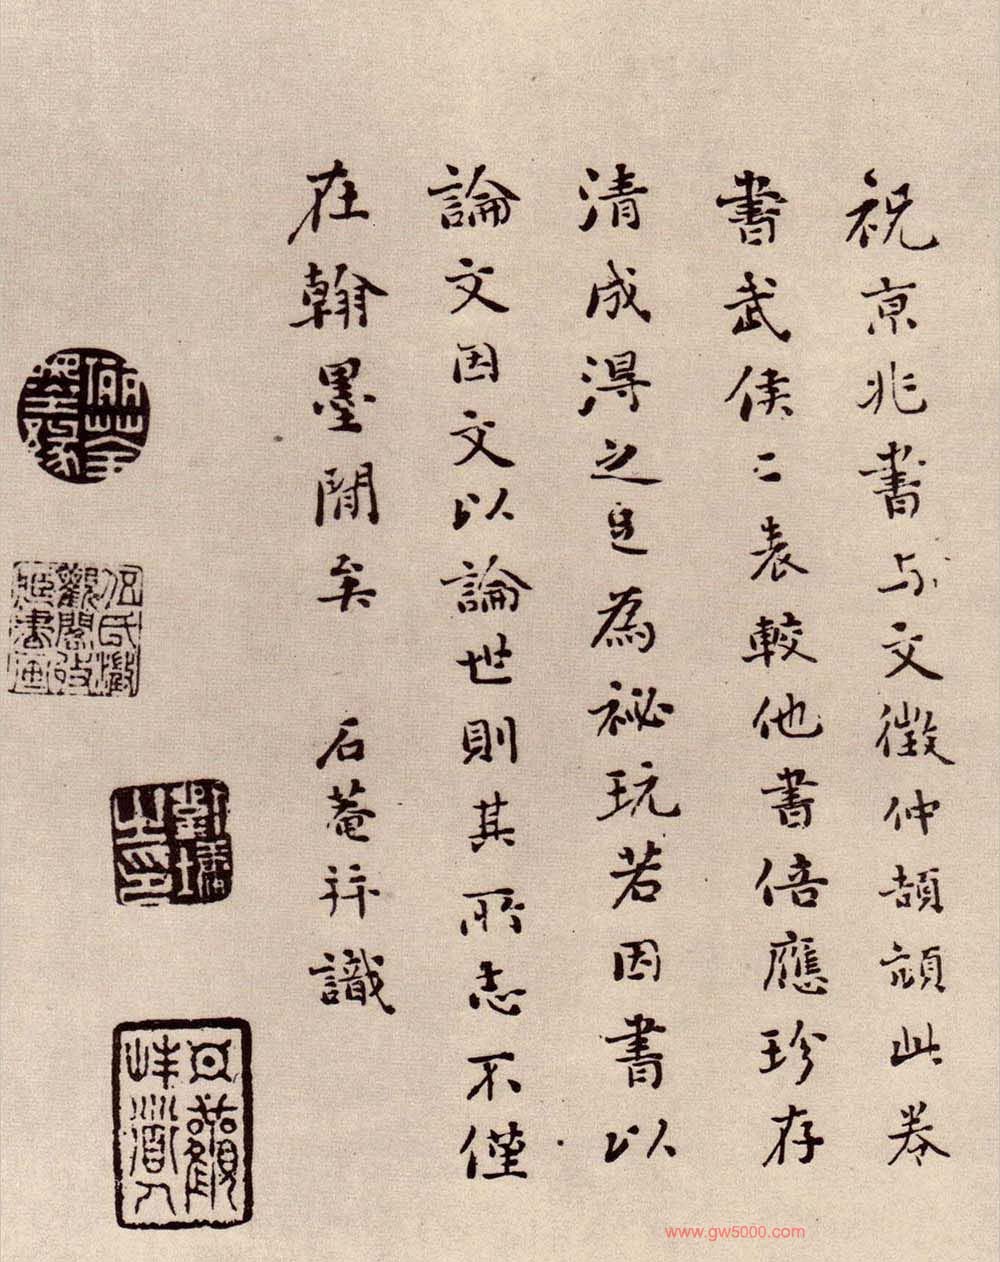 祝京兆書与文徵仲頡頏此卷
書武侯二表較他書倍應珍存
清成得之足為祕玩若因書以
論文因文以論世則其所志不僅
在翰墨閒矣 石菴并識
劉墉之印
日觀峰道人
www.gw5000.com